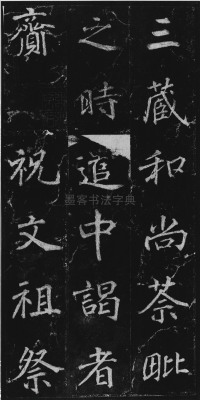 三藏和尚荼毗
之時追中謁者
齎祝文祖祭
墨客书法字典